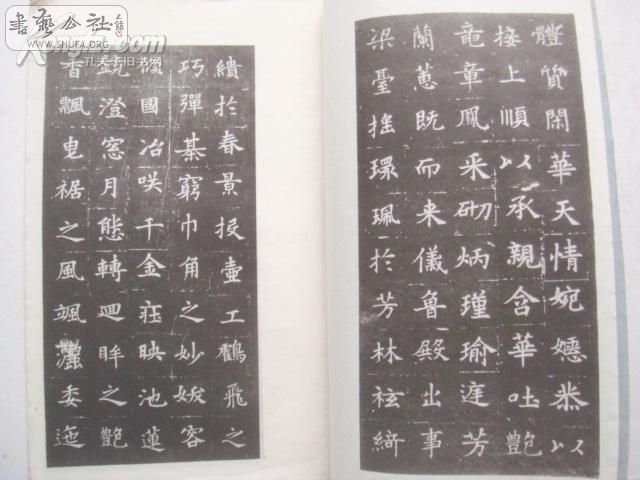 書藝公社
www.SHUFA.ORG
孔夫子旧书网
體質閑華天情婉嫕恭以
接上順以承親含華吐艷
竜章鳳采砌炳瑾瑜庭芳
蘭蕙既而来儀魯殿出事
梁臺搖環珮於芳林袨綺
繢於春景投壺工鶴飛之
巧彈棊窮巾角之妙妖容
傾國冶咲千金莊映池蓮
鏡澄窓月態轉迴眸之艷
香飄曳裾之風颯灑委迤